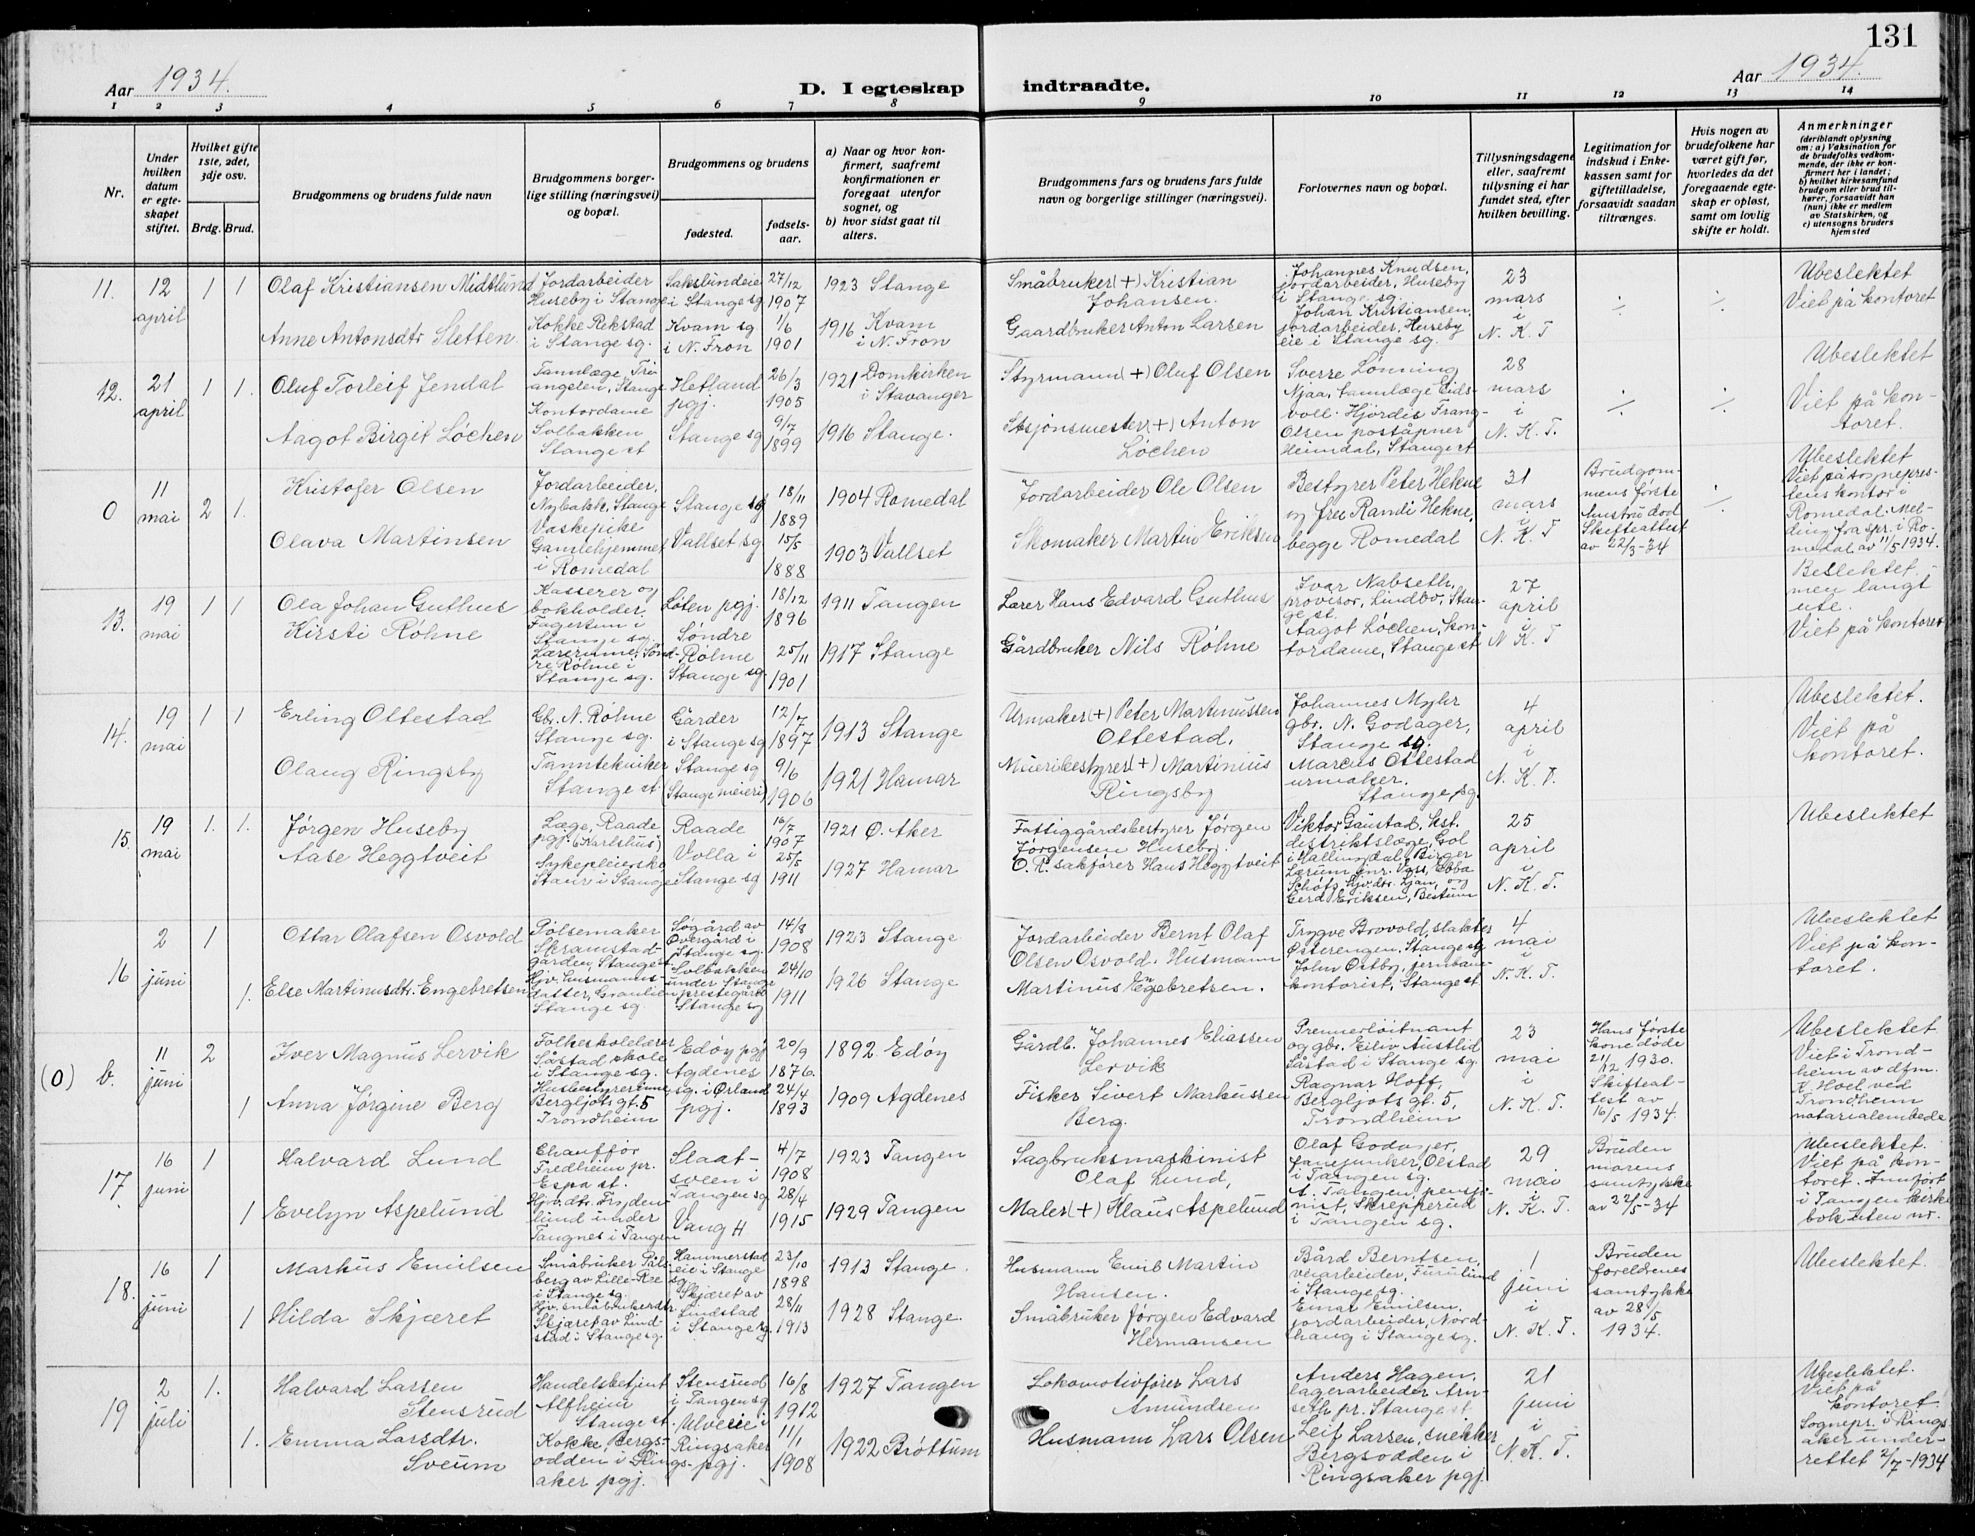 131
Aar 1934.
D. I egteskap indtraadte.
Aar 1934.
1 2 3 4 5 6 7 8 9 10 11 12 13 14
Nr.
Under hvilken datum er egteskapet stiftet.
Hvilket gifte 1ste, 2det, 3dje osv.
Brdg. Brud.
Brudgommens og brudens fulde navn
Brudgommens borgerlige stilling (næringsvei) og bopæl.
Brudgommens og brudens
fødested.
fødselsaar.
a) Naar og hvor konfirmert, saafremt konfirmationen er foregaat utenfor sognet, og
b) hvor sidst gaat til alters.
Brudgommens fars og brudens fars fulde navn og borgerlige stillinger (næringsvei).
Forlovernes navn og bopæl.
Tillysningsdagene eller, saafremt tillysning ei har fundet sted, efter hvilken bevilling.
Legitimation for indskud i Enkekassen samt for giftetilladelse, forsaavidt saadan tiltrænges.
Hvis nogen av brudefolkene har været gift før, hvorledes da det foregaaende egteskap er opløst, samt om lovlig skifte er holdt.
Anmerkninger
(deriblandt oplysning om: a) Vaksination for de brudefolks vedkommende, der ikke er konfirmert her i landet; b) hvilket kirkesamfund brudgom eller brud tilhører, forsaavidt han (hun) ikke er medlem av Statskirken, og c) utensogns bruders hjemsted
11. 12 april 1 1
Olaf Kristiansen Midtlund
Jordarbeider Huseby i Stange
Sakslundeie i Stange sg
27/12 1907
1923 Stange
Småbruker (+) Kristian Johansen.
Johannes Knudsen, jordarbeider, Huseby i Stange sg.
23 mars i N. K. T
÷ ÷
Ubeslektet
Viet på kontoret
Anne Antonsdtr Sletten.
Kokke Rekstad i Stange sg.
Kvam sg. i N. Fron
1/6 1901
1916 Kvam i N. Fron
Gaardbruker Anton Larsen
Johan Kristiansen, jordarbeider, Huseby eie i Stange sg.
12. 21 april 1 1.
Oluf Torleif Jendal
Tannlæge, Triangelen, Stange
Hetland pgj.
26/3 1905
1921 Domkirken i Stavanger
Styrmann (+) Oluf Olsen
Sverre Lønning Njaa, tannlæge Eidsvoll.
28 mars i N. K. T.
÷ ÷
Ubeslektet
Viet på kontoret.
Aagot Birgit Løchen
Kontordame Solbakken Stange st
Stange sg
9/7 1899
1916 Stange.
Stasjonsmester (+) Anton Løchen
Hjørdis Frang-Olsen poståpner Heimdal, Stange st
0 11 mai 2 1.
Kristofer Olsen
Jordarbeider, Nybakk, Stange
Stange sg
18/11 1889
1904 Romedal
Jordarbeider Ole Olsen
Bestyrer Peter Hekne og frue Randi Hekne, begge Romedal
31 mars i N. K. T
Brudgommens første hustru död Skifteattest av 22/3-34
÷
Ubeslektet
Viet på sogneprestens kontor i Romedal. Melding fra spr. i Romedal av 11/5 1934.
Olava Martinsen
Vaskepike Gamlehjemmet i Romedal
Vallset sg.
15/5 1888
1903 Vallset
Skomaker Martin Eriksen
13. 19 mai 1 1
Ola Johan Guthus
Kasserer og bokholder Fagertun i Stange sg.
Løten pgj.
18/12 1896
1911 Tangen
Lærer Hans Edvard Guthus
Ivar Nabseth, provisor, Lindbo, Stange st.
27 april i N. K. T
Beslektet men langt ute.
Viet på kontoret
Kirsti Røhne
Lærerinne, Søndre Røhne i Stange sg.
Søndre Røhne Stange sg.
25/11 1901
1917 Stange
Gårdbruker Nils Røhne
Aagot Løchen, kontordame, Stange st
14. 19 mai 1 1
Erling Ottestad
Gbr. N. Røhne Stange sg.
Gårder i Stange sg
12/7 1897
1913 Stange
Urmaker (+) Peter Martinussen Ottestad,
Johannes Myhr gbr. N. Godager, Stange sg.
4 april i N. K. T.
Ubeslektet.
Viet på kontoret.
Olaug Ringsby
Tanntekniker Stange st
Stange sg (Stange meieri)
9/6 1906
1921 Hamar
Meieribestyrer (+) Martinius Ringsby
Marcus Ottestad urmaker. Stange sg.
15. 19 mai 1. 1.
Jørgen Huseby
Læge, Raade pgj. (Karlshus)
Raade
16/7 1907
1921 Ø. Aker
Fattiggårdsbestyrer Jørgen Jørgensen Huseby.
Viktor Gaustad, kst. distriktslæge, Gol i Hallingdal,
25 april i N. K. T.
Ubeslektet
Aase Heggtveit
Sykepleierske Staur i Stange
Volla i Stange sg
25/5 1911
1927 Hamar
O. R. sakfører Hans Heggtveit
16 2 juni 1
Ottar Olafsen Osvold
Pølsemaker Skramstadgården, Stange st.
Søgård av Övergård i Stange sg.
14/8 1908
1923 Stange
Jordarbeider Bernt Olaf Olsen Osvold.
Trygve Brovold, slakter Østerengen, Stange sg
4 mai i N. K. T.
Ubeslektet
Viet på kontoret.
1. Else Martinusdtr. Engebretsen
Hjv. husmannsdatter, Granlien Stange sg.
Solbakken under Stange prestegård Stange sg
24/10 1911
1926 Stange
Husmann Martinus Engebretsen.
John Østby, jernbanekontorist, Stange st
(0) b. 11 juni 2
Iver Magnus Lervik
Folkeskolelærer Såstad skole i Stange sg.
Edøy pgj
20/9 1876.
1892. Edøy
Gårdb. Johannes Eliassen Lervik
Premierløitnant og gbr. Eiliv Austlid Såstad i Stange sg.
23 mai i N. K. T.
Hans første kone døde 21/12 1930. Skifteattest av 16/5 1934.
Ubeslektet
Viet i Trondheim av dfm. K. Hoel ved Trondheim notarialembede
1 Anna Jørgine Berg
Husbestyrerinne, Bergljots gt. 5 Trondheim
Agdenes sg. i Ørland pgj.
24/4 1893
1909 Agdenes
Fisker Sivert Markussen Berg.
Ragnar Hoff, Bergljots gt. 5, Trondheim
17. 16 juni 1
Halvard Lund
Chauffør Fredheim pr. Espa st.
Slaatsveen i Tangen sg
4/7 1908
1923 Tangen
Sagbruksmaskinist Olaf Lund,
Olaf Godager, fanejunker, Olstad i Tangen sg.
29 mai i N. K. T.
Bruden morens samtykke av 22/5-34
Ubeslektet.
Viet på kontoret. Innført i Tangen kirkebok uten nr.
1 Evelyn Aspelund
Hjv. dtr. Frydenlund under Tangnes i Tangen
Vang H
28/4 1915
1929 Tangen
Maler (+) Klaus Aspelund
A. Tangen, pensjonist, Skrepperud i Tangen sg.
18. 16 juni 1
Markus Emilsen
Småbruker Pålsberg av Lille-Ree i Stange sg.
Hammerstad eie i Stange sg
23/10 1898
1913 Stange.
Husmann Emil Martin Hansen.
Bård Berntsen, veiarbeider, Furulund i Stange sg.
1 juni i N. K. T.
Bruden foreldrenes samtykke av 28/5 1934.
Ubeslektet.
1 Hilda Skjæret
Hjv. småbrukerdtr Skjæret av Lindstad i Stange sg.
Skjæret av Lindstad i Stange sg.
28/11 1913
1928 Stange.
Småbruker Jørgen Edvard Hermansen
Einar Emilsen, jordarbeider, Nordhaug i Stange sg.
19 2 juli 1.
Halvard Larsen Stensrud
Handelsbetjent Alfheim Stange st.
Stensrud i Tangen sg
16/8 1912
1927 Tangen
Lokomotivfører Lars Amundsen
Anders Hagen, lagerarbeider Arnseth pr. Stange st
21 juni i N. K. T.
Ubeslektet.
Viet på kontoret.
Sognepr. i Ringsaker underrettet 2/7-1934
1. Emma Larsdtr. Sveum
Kokke, Bergsodden i Ringsaker pgj.
Ulveeie i Ringsaker pgj.
11/1 1908
1922 Brøttum
Husmann Lars Olsen
Leif Larsen, snekker Bergsodden i Ringsaker pgj.